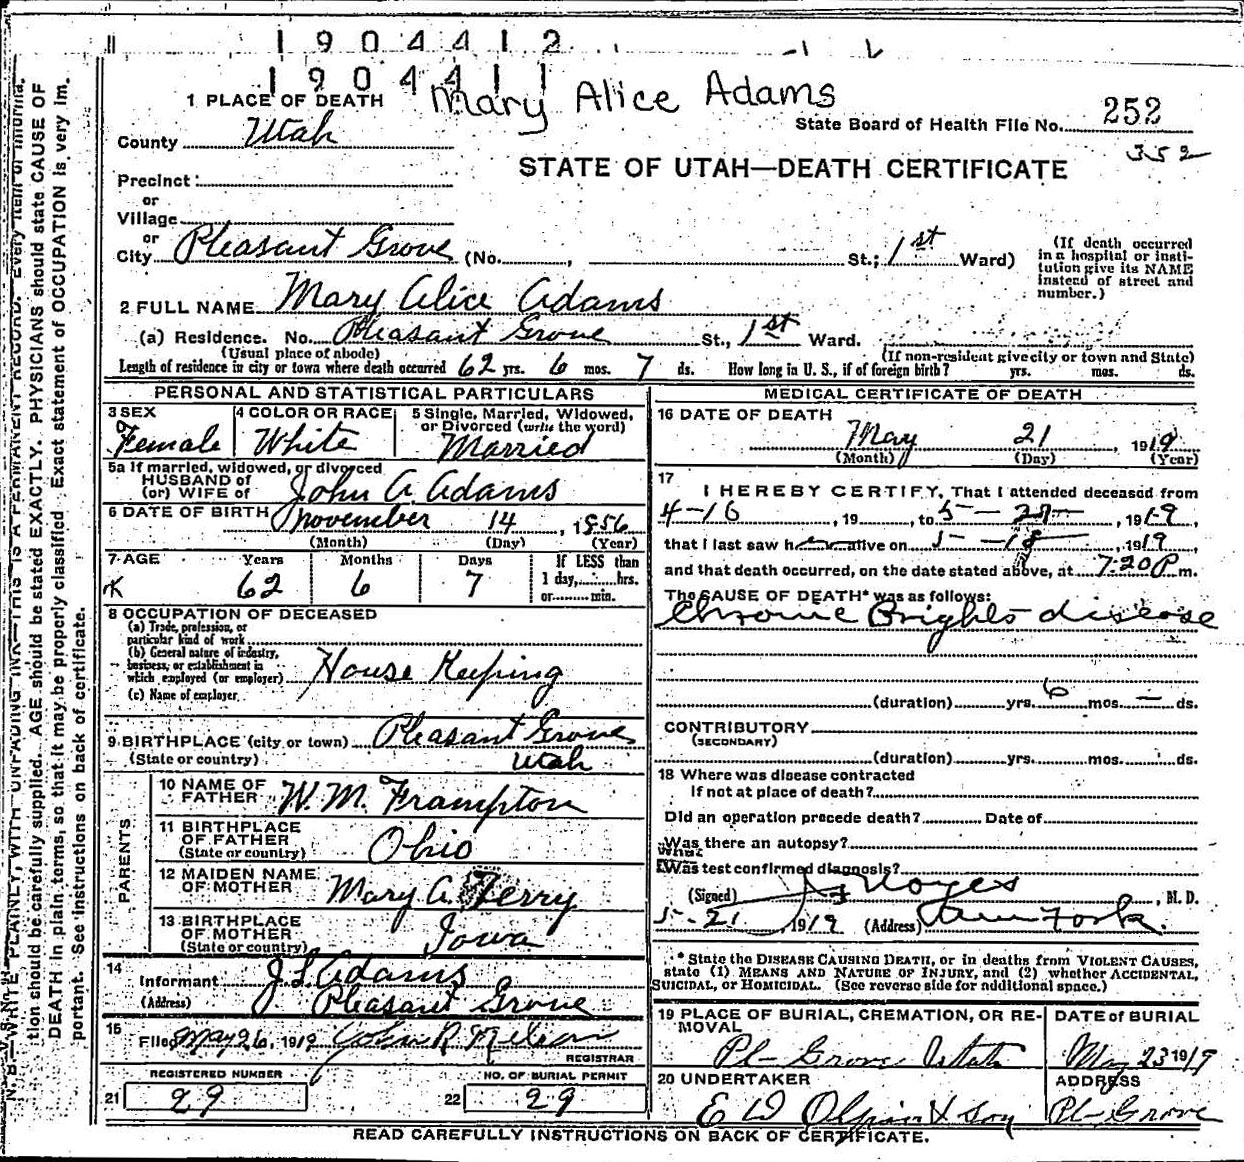 1904412
1904411
Mary Alice Adams
1 PLACE OF DEATH
State Board of Health File No. 252
352
County Utah
STATE OF UTAH—DEATH CERTIFICATE
Precinct
or
Village
or
City Pleasant Grove (No. , St.; 1st Ward)
(If death occurred in a hospital or institution give its NAME instead of street and number.)
2 FULL NAME Mary Alice Adams
(a) Residence. No. Pleasant Grove St., 1st Ward.
(Usual place of abode) (If non-resident give city or town and State)
Length of residence in city or town where death occurred 62 yrs. 6 mos. 7 ds. How long in U. S., if of foreign birth? yrs. mos. ds.
PERSONAL AND STATISTICAL PARTICULARS
3 SEX Female
4 COLOR OR RACE White
5 Single, Married, Widowed, or Divorced (write the word) Married
5a If married, widowed, or divorced
HUSBAND of
(or) WIFE of John A. Adams
6 DATE OF BIRTH November 14, 1856
(Month) (Day) (Year)
7 AGE Years Months Days If LESS than
62 6 7 1 day, hrs.
or min.
8 OCCUPATION OF DECEASED
(a) Trade, profession, or
particular kind of work
(b) General nature of industry,
business, or establishment in
which employed (or employer) House Keeping
(c) Name of employer
9 BIRTHPLACE (city or town) Pleasant Grove
(State or country) Utah
PARENTS
10 NAME OF FATHER W. M. Frampton
11 BIRTHPLACE OF FATHER Ohio
(State or country)
12 MAIDEN NAME OF MOTHER Mary A. Terry
13 BIRTHPLACE OF MOTHER Iowa
(State or country)
14
Informant J. L. Adams
(Address) Pleasant Grove
15
Filed May 26, 1919 John R.
REGISTRAR
REGISTERED NUMBER NO. OF BURIAL PERMIT
21 29 22 29
MEDICAL CERTIFICATE OF DEATH
16 DATE OF DEATH
May 21 1919
(Month) (Day) (Year)
17
I HEREBY CERTIFY, That I attended deceased from
4-16, 19 , to 5- , 1919,
that I last saw her alive on 5-18, 1919,
and that death occurred, on the date stated above, at 7:20 P m.
The CAUSE OF DEATH* was as follows:
Chronic Brights disease
(duration) yrs. 6 mos. — ds.
CONTRIBUTORY
(SECONDARY)
(duration) yrs. mos. ds.
18 Where was disease contracted
If not at place of death?
Did an operation precede death? Date of
Was there an autopsy?
What
Was test confirmed diagnosis?
(Signed) Noyes, M. D.
5-21 1919 (Address) Am Fork.
* State the DISEASE CAUSING DEATH, or in deaths from VIOLENT CAUSES,
state (1) MEANS AND NATURE OF INJURY, and (2) whether ACCIDENTAL,
SUICIDAL, or HOMICIDAL. (See reverse side for additional space.)
19 PLACE OF BURIAL, CREMATION, OR REMOVAL
Pl- Grove Utah
DATE of BURIAL
May 23 1919
20 UNDERTAKER
E D Olpin & Son
ADDRESS
Pl- Grove
READ CAREFULLY INSTRUCTIONS ON BACK OF CERTIFICATE.
N. B.—WRITE PLAINLY, WITH UNFADING INK—THIS IS A PERMANENT RECORD. Every item of informa-
tion should be carefully supplied. AGE should be stated EXACTLY. PHYSICIANS should state CAUSE OF
DEATH in plain terms, so that it may be properly classified. Exact statement of OCCUPATION is very im-
portant. See instructions on back of certificate.